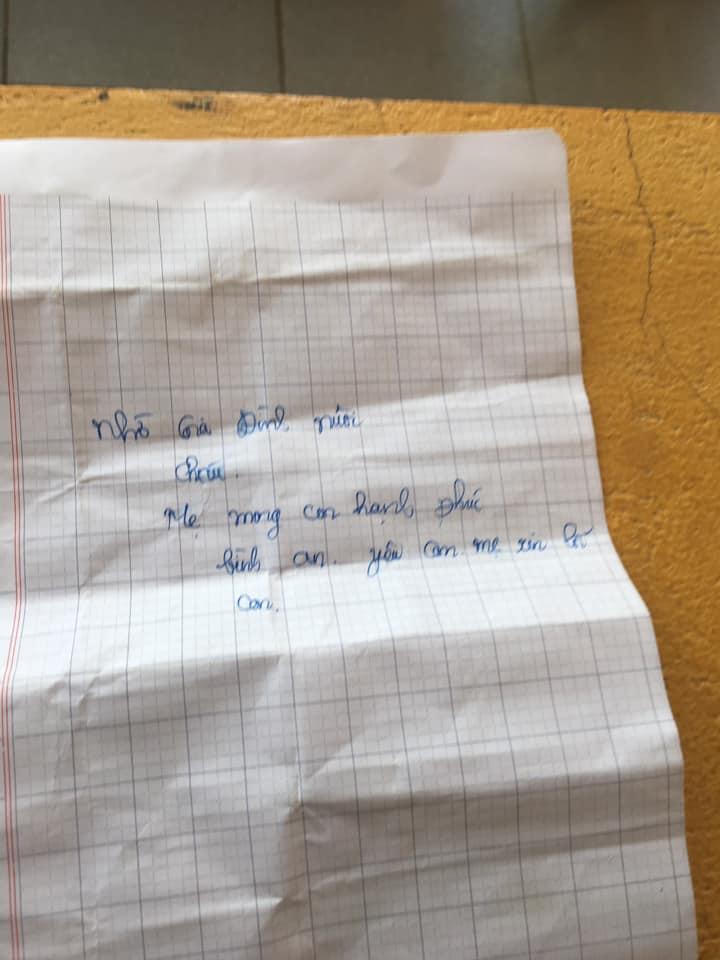 Nhờ Gia Đình nuôi
cháu.
Mẹ mong con hạnh phúc
bình an. yêu con. mẹ xin lỗi
con.